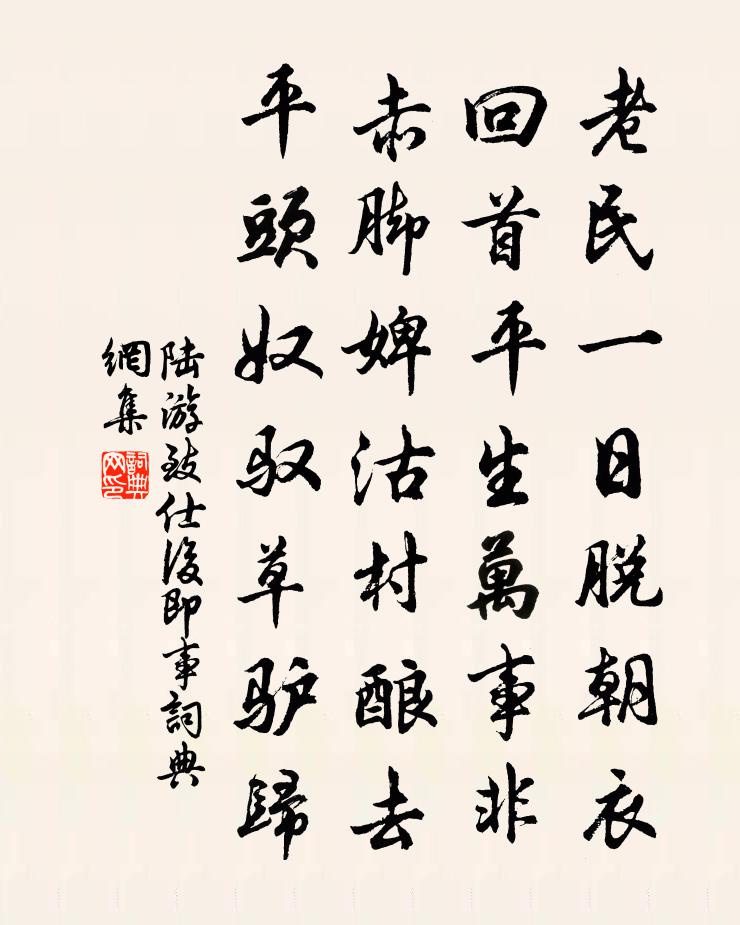 老民一日脱朝衣
回首平生萬事非
赤脚婢沽村酿去
平頭奴驭草驴歸
陆游致仕後即事詞典
網集
詞典
网印